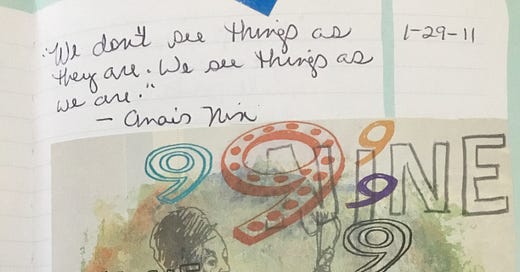 "We don't see things as
they are. We see things as
we are."
– Anais Nin
1-29-11
9 9 9 NINE
9
9